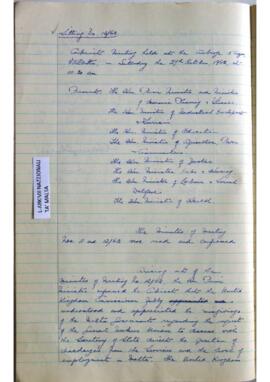 Sitting No. 14/62
Cabinet Meeting held at the Auberge d'Aragon
Valletta, on Saturday the 27th October 1962, at
10.30 am
Present: The Hon Prime Minister and Minister
of Economic Planning & Finance.
The Hon Minister of Industrial Development
& Tourism
The Hon Minister of Education
The Hon Minister of Agriculture Power
& Communications
The Hon Minister of Justice
The Hon Minister Works & Housing
The Hon Minister of Labour & Social
Welfare
The Hon Minister of Health.
L-ARKIVJI NAZZJONALI
TA' MALTA
The Minutes of Meeting
Nos 11 and 12/62 were read and confirmed
Arising out of the
Minutes of Meeting No 12/62 the Hon Prime
Minister informed the Cabinet that the United
Kingdom Commissioner fully
understood and appreciated the misgivings
of the Malta Government regarding the
of the Minister to discuss with
the Secretary of State direct the question of
discharges from the Services and the level of
employment in Malta. The United Kingdom